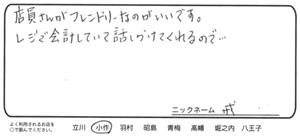 店員さんがフレンドリーなのがいいです。
レジで会計していて話しかけてくれるので…
ニックネーム
よく利用されるお店を
○で囲んでください。
立川 小作 羽村 昭島 青梅 高幡 堀之内 八王子